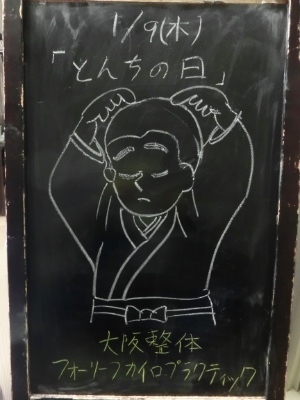 1/9(水)
「とんちの日」
大阪整体
フォーリーフカイロプラクティック